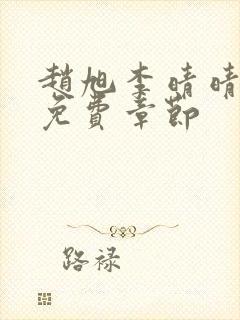 趙旭李晴晴
免費章節
路祿